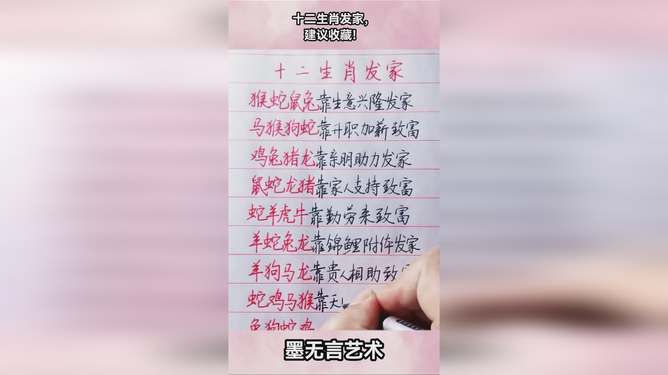 十二生肖发家，
建议收藏！
十二生肖发家
猴蛇鼠兔靠生意兴隆发家
马猴狗蛇靠升职加薪致富
鸡兔猪龙靠亲朋助力发家
鼠蛇龙猪靠家人支持致富
蛇羊虎牛靠勤劳来致富
羊蛇兔龙靠锦鲤附体发家
羊狗马龙靠贵人相助致
蛇鸡马猴靠天
兔狗蛇鸡
墨无言艺术